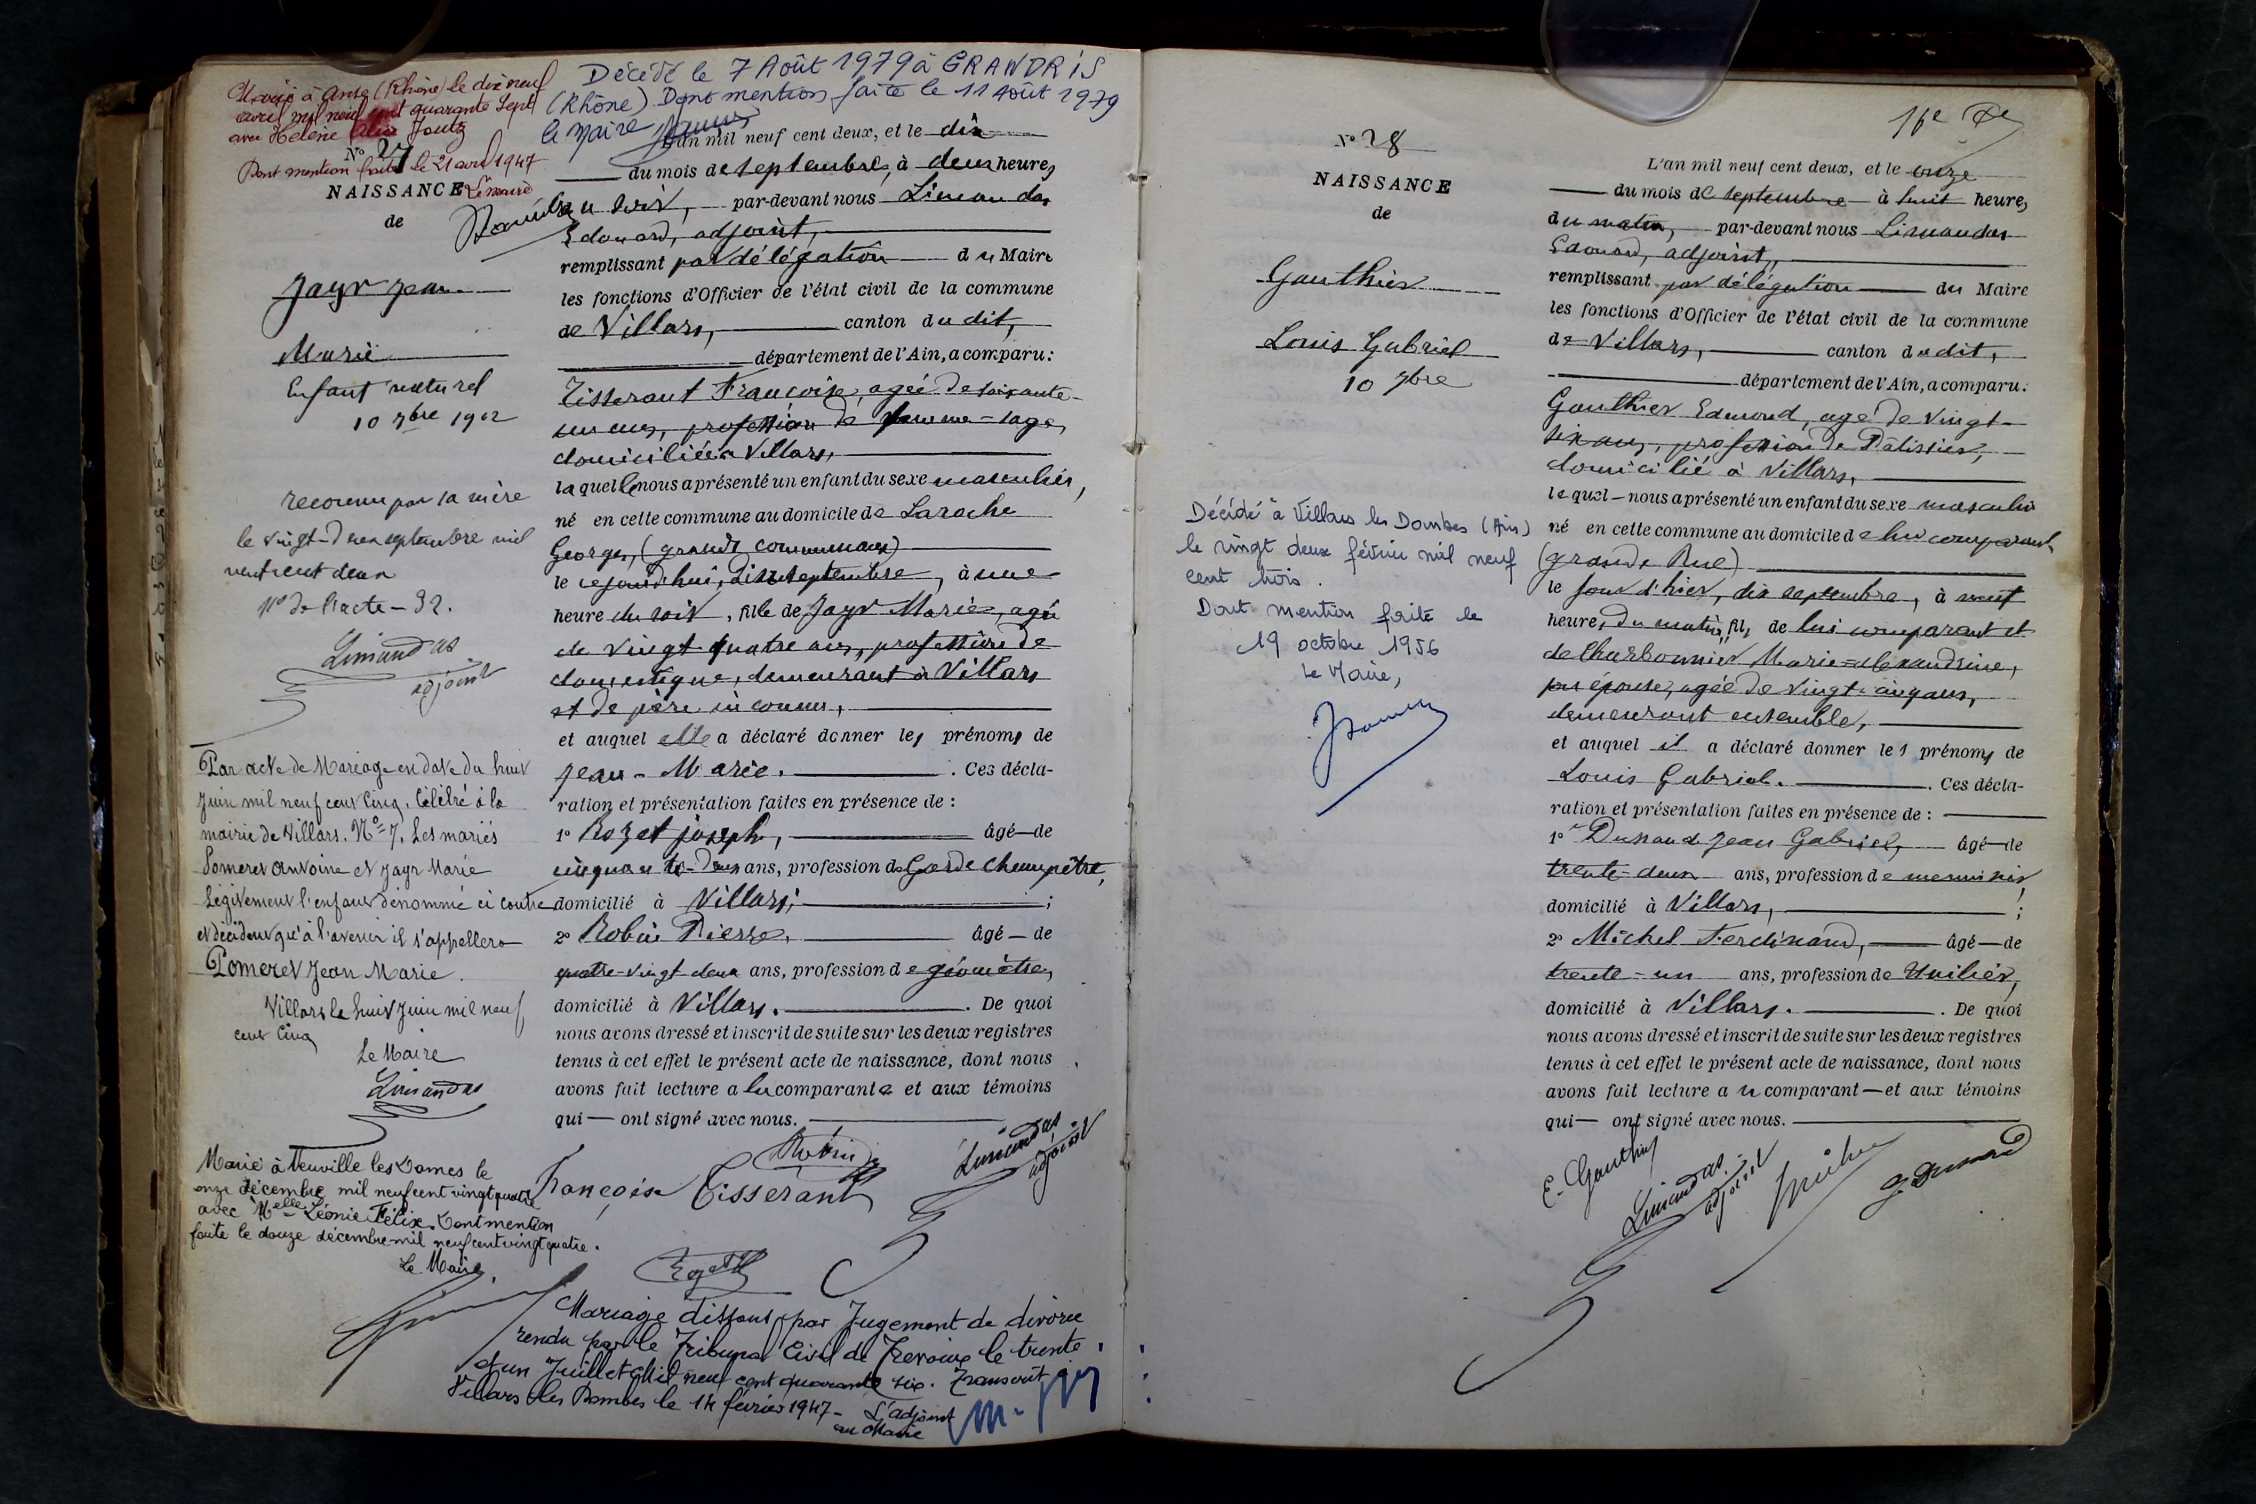 Marié à Anse (Rhône) le dix neuf
avril mil neuf cent quarante Sept
avec Hélène
Dont mention faite le 21 avril 1947
Le maire
Décédé le 7 Août 1979 à GRANDRIS
(Rhône) Dont mention faite le 11 Août 1979
le Maire
N° 27
NAISSANCE
de
Jayr Jean
Marie
Enfant naturel
10 7bre 1902
reconnu par sa mère
le vingt-deux septembre mil
neuf cent deux
N° de l'acte - 32.
Limandas
adjoint
Par acte de Mariage en date du huit
Juin mil neuf cent cinq, célébré à la
mairie de Villars. N° 7. Les mariés
Pomeret Antoine et Jayr Marie
Légitement l'enfant dénommé ci contre
et décident qu'à l'avenir il s'appellera
Pomeret Jean Marie.
Villars le huit Juin mil neuf
cent cinq
Le Maire
Limandas
Marié à Neuville les Dames le
onze décembre mil neuf cent vingt quatre
avec Melle Léonie Félix. Dont mention
faite le douze décembre mil neuf cent vingt quatre.
Le Maire,
L'an mil neuf cent deux, et le dix
du mois de septembre, à deux heures
du soir, par-devant nous Limandas
Edouard, adjoint,
remplissant par délégation du Maire
les fonctions d'Officier de l'état civil de la commune
de Villars, canton du dit,
département de l'Ain, a comparu:
Tisserant Françoise, agée de soixante-
un ans, profession de femme-sage,
domiciliée à Villars,
laquelle nous a présenté un enfant du sexe masculin,
né en cette commune au domicile de Laroche
Georges, (grands communaux)
le cejourd'hui, dix septembre, à une
heure du soir, fils de Jayr Marie, agée
de vingt quatre ans, profession de
domestique, demeurant à Villars
et de père inconnu,
et auquel elle a déclaré donner les prénoms de
Jean-Marie. Ces décla-
ration et présentation faites en présence de:
1° Rozet Joseph, âgé de
cinquante-deux ans, profession de Garde champêtre,
domicilié à Villars;
2° Robin Pierre, âgé de
quatre-vingt deux ans, profession de géomètre,
domicilié à Villars. De quoi
nous avons dressé et inscrit de suite sur les deux registres
tenus à cet effet le présent acte de naissance, dont nous
avons fait lecture a la comparante et aux témoins
qui ont signé avec nous.
Robin
Limandas
adjoint
Françoise Tisserant
Rozet
Mariage dissous par Jugement de divorce
rendu par le Tribunal Civil de Trévoux le trente
et un Juillet Mil neuf cent quarante six. Transcrit à
Villars les Dombes le 14 février 1947 - L'adjoint
au Maire
N° 28
NAISSANCE
de
Gauthier
Louis Gabriel
10 7bre
Décédé à Villars les Dombes (Ain)
le vingt deux février mil neuf
cent trois.
Dont mention faite le
19 octobre 1956
Le Maire,
L'an mil neuf cent deux, et le onze
du mois de septembre à huit heures
du matin, par-devant nous Limandas
Edouard, adjoint,
remplissant par délégation du Maire
les fonctions d'Officier de l'état civil de la commune
de Villars, canton du dit,
département de l'Ain, a comparu:
Gauthier Edmond, agé de vingt-
six ans, profession de Pâtissier,
domicilié à Villars,
lequel nous a présenté un enfant du sexe masculin
né en cette commune au domicile de lui comparant
(grande Rue)
le jour d'hier, dix septembre, à neuf
heures du matin, fils de lui comparant et
de Charbonnier Marie-Alexandrine,
son épouse, agée de vingt-cinq ans,
demeurant ensemble,
et auquel il a déclaré donner les prénoms de
Louis Gabriel. Ces décla-
ration et présentation faites en présence de:
1° Dunand Jean Gabriel, âgé de
trente-deux ans, profession de menuisier,
domicilié à Villars,;
2° Michel Ferdinand, âgé de
trente-un ans, profession de
domicilié à Villars. De quoi
nous avons dressé et inscrit de suite sur les deux registres
tenus à cet effet le présent acte de naissance, dont nous
avons fait lecture au comparant et aux témoins
qui ont signé avec nous.
E. Gauthier
Limandas
adjoint
Michel
J Dunand